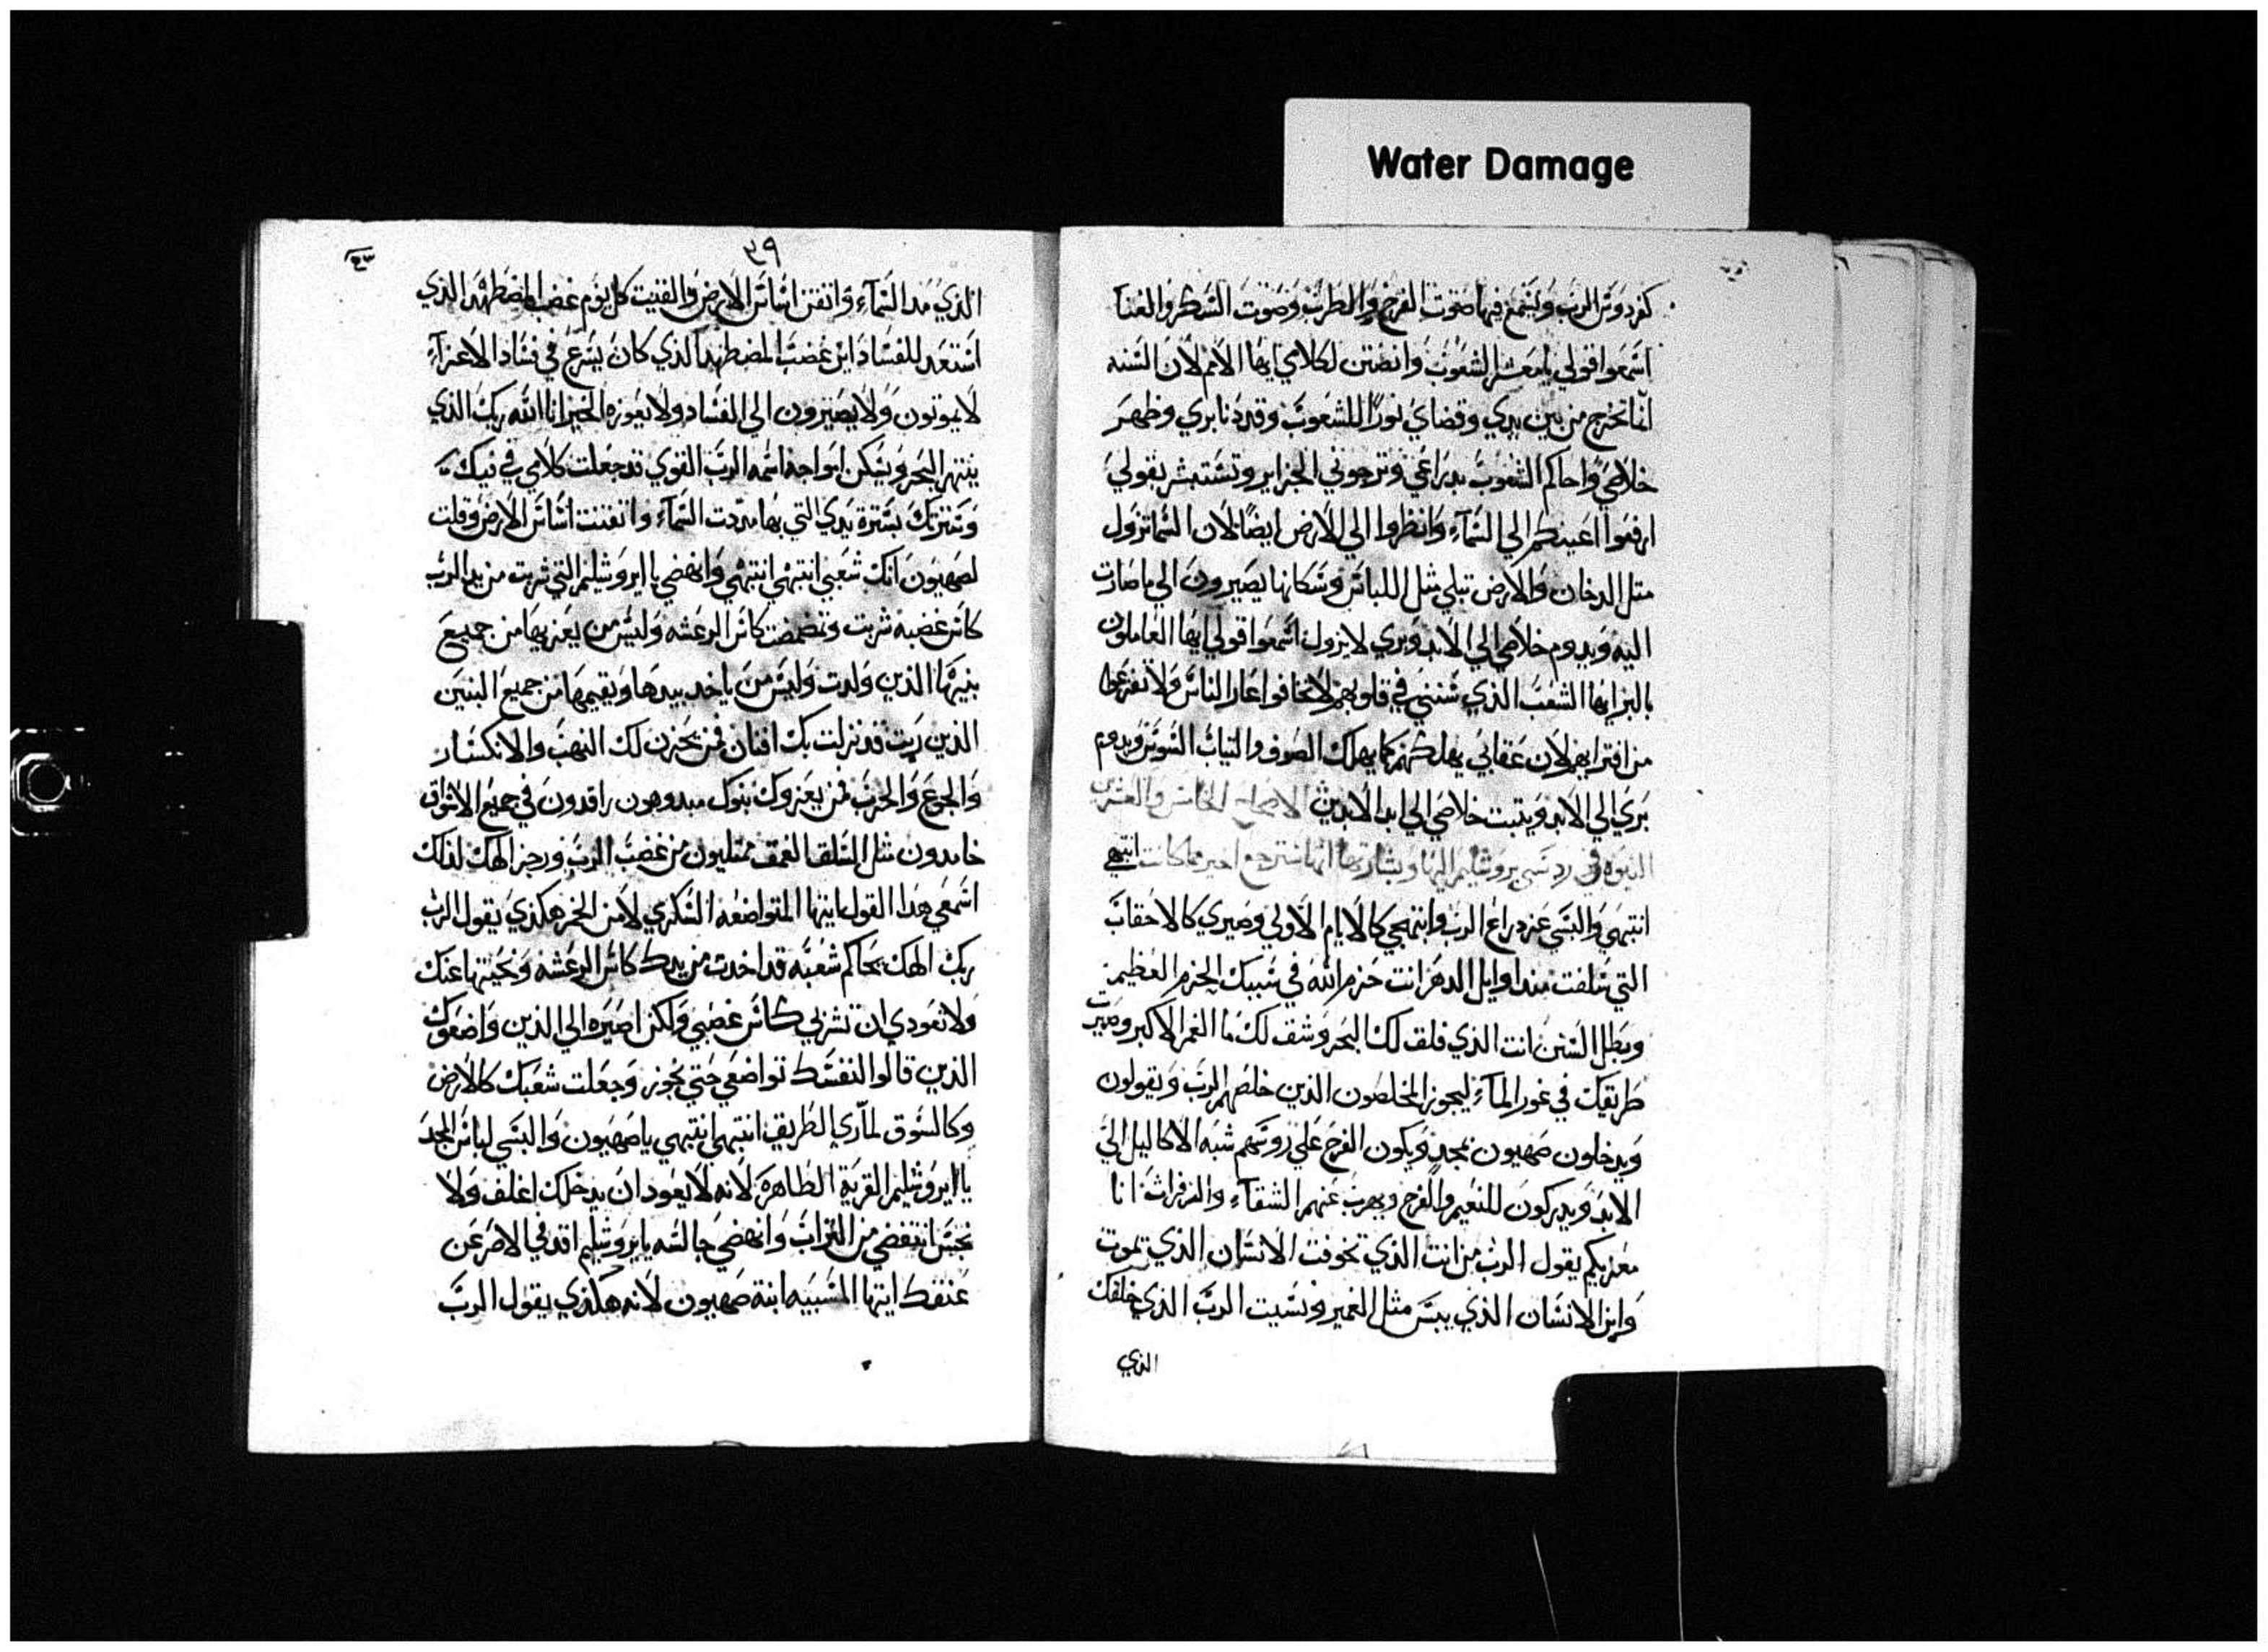 Water Damage
كفردوس الرب ويسمع فيها صوت الفرح والطرب وصوت الشكر والغنا
اسمعوا قولي يا معشر الشعوب وانصتن لكلامي ايها الامم لان السنه
انما تخرج من بين يدي وقضاي نورًا للشعوب وقد دنا بري وظهر
خلاصي واحاكم الشعوب بدراعي وترجوني الجزاير وتستبشر بقولي
ارفعوا اعينكم الي السمآء وانظروا الي الارض ايضًا لان السما تزول
متل الدخان والارض تبلي مثل اللباس وسكانها يصيرون الي ما صارت
اليه ويدوم خلاصي الي الابد وبري لا يزول اسمعوا قولي ايها العاملون
بالبر ايها الشعب الذي سنني في قلوبهم لا تخافوا عار الناس ولا تفزعوا
من افترايهم لان عقابي يهلكهم كما يهلك الصوف والتياب السوس ويدوم
بري الي الابد ويتبت خلاصي الي ابد الابدين الاصحاح الخامس والعشرين
النبوه في رد سبي يروشليم اليها وبشارتها انها سترجع اخير مما كانت انتبهي
انتبهي والبسي عز دراع الرب وابتهجي كالايام الاولي وصيري كالاحقاب
التي سلفت مند اوايل الدهر انت حزم الله في سببك الحزم العظيم
وبطل السنن انت الذي فلق لك البحر وشق لك ما الغمر الاكبر وصيرت
طريقك في غور المآء ليجوز المخلصون الذين خلصهم الرب ويقولون
ويدخلون صهيون بمجد ويكون الفرح علي روسهم شبه الاكاليل الي
الابد ويدركون للنعيم والفرح ويهرب عنهم الشقآء والزفرات انا
معزيكم يقول الرب من انت الذي تخوفت الانسان الذي يموت
وابن الانسان الذي ييبس مثل الغمير ونسيت الرب الذي خلقك
الذي
٣٩
الذي مد السمآء واتقن اساس الارض والقيت كل يوم غضب المضطهد الذي
استعد للفساد اين غضب المضطهد الذي كان يسرع في فساد الاعزآء
لا يموتون ولا يصيرون الي الفساد ولا يعوزه الخبز انا الله ربك الذي
ينتهر البحر ويسكن امواجه اسمه الرب القوي قد جعلت كلامي في فيك
وسترتك بسترة يدي التي بها مددت السمآء واتقنت اساس الارض وقلت
لصهيون انك شعبي انتبهي انتبهي وانهضي يا ايروشليم التي شربت من يد الرب
كاس غضبه شربت وتمضمضت كاس الرعشه وليس من يعزيها من جميع
بنيها الذين ولدت وليس من ياخد بيدها ويقيمها من جميع البنين
الذين ربت قد نزلت بك افتان فمن يحزن لك النهب والانكسار
والجوع والحرب فمن يعزوك بنوك مبدوهون راقدون في جميع الاسواق
خامدون مثل السلق العمق ممتليون من غضب الرب ورجز الهك لذلك
اسمعي هدا القول ايتها المتواضعه السكري لا من الخمر هكذي يقول الرب
ربك الهك يحاكم شعبه قد اخدت من يدك كاس الرعشه ونحيتها عنك
ولا تعودي ان تشربي كاس غضبي ولكن اصيره الي الذين واضعوك
الذين قالوا لنفسك تواضعي حتي نجوز وجعلت شعبك كالارض
وكالسوق لمآري الطريق انتبهي انتبهي يا صهيون والبسي لباس المجد
يا ايروشليم القرية الطاهرة لانه لا يعود ان يدخلك اغلف ولا
نجس انتفضي من التراب وانهضي جالسه يا يروشليم اقد في الاصر عن
عنقك ايتها المسبيه ابنة صهيون لانه هكذي يقول الرب